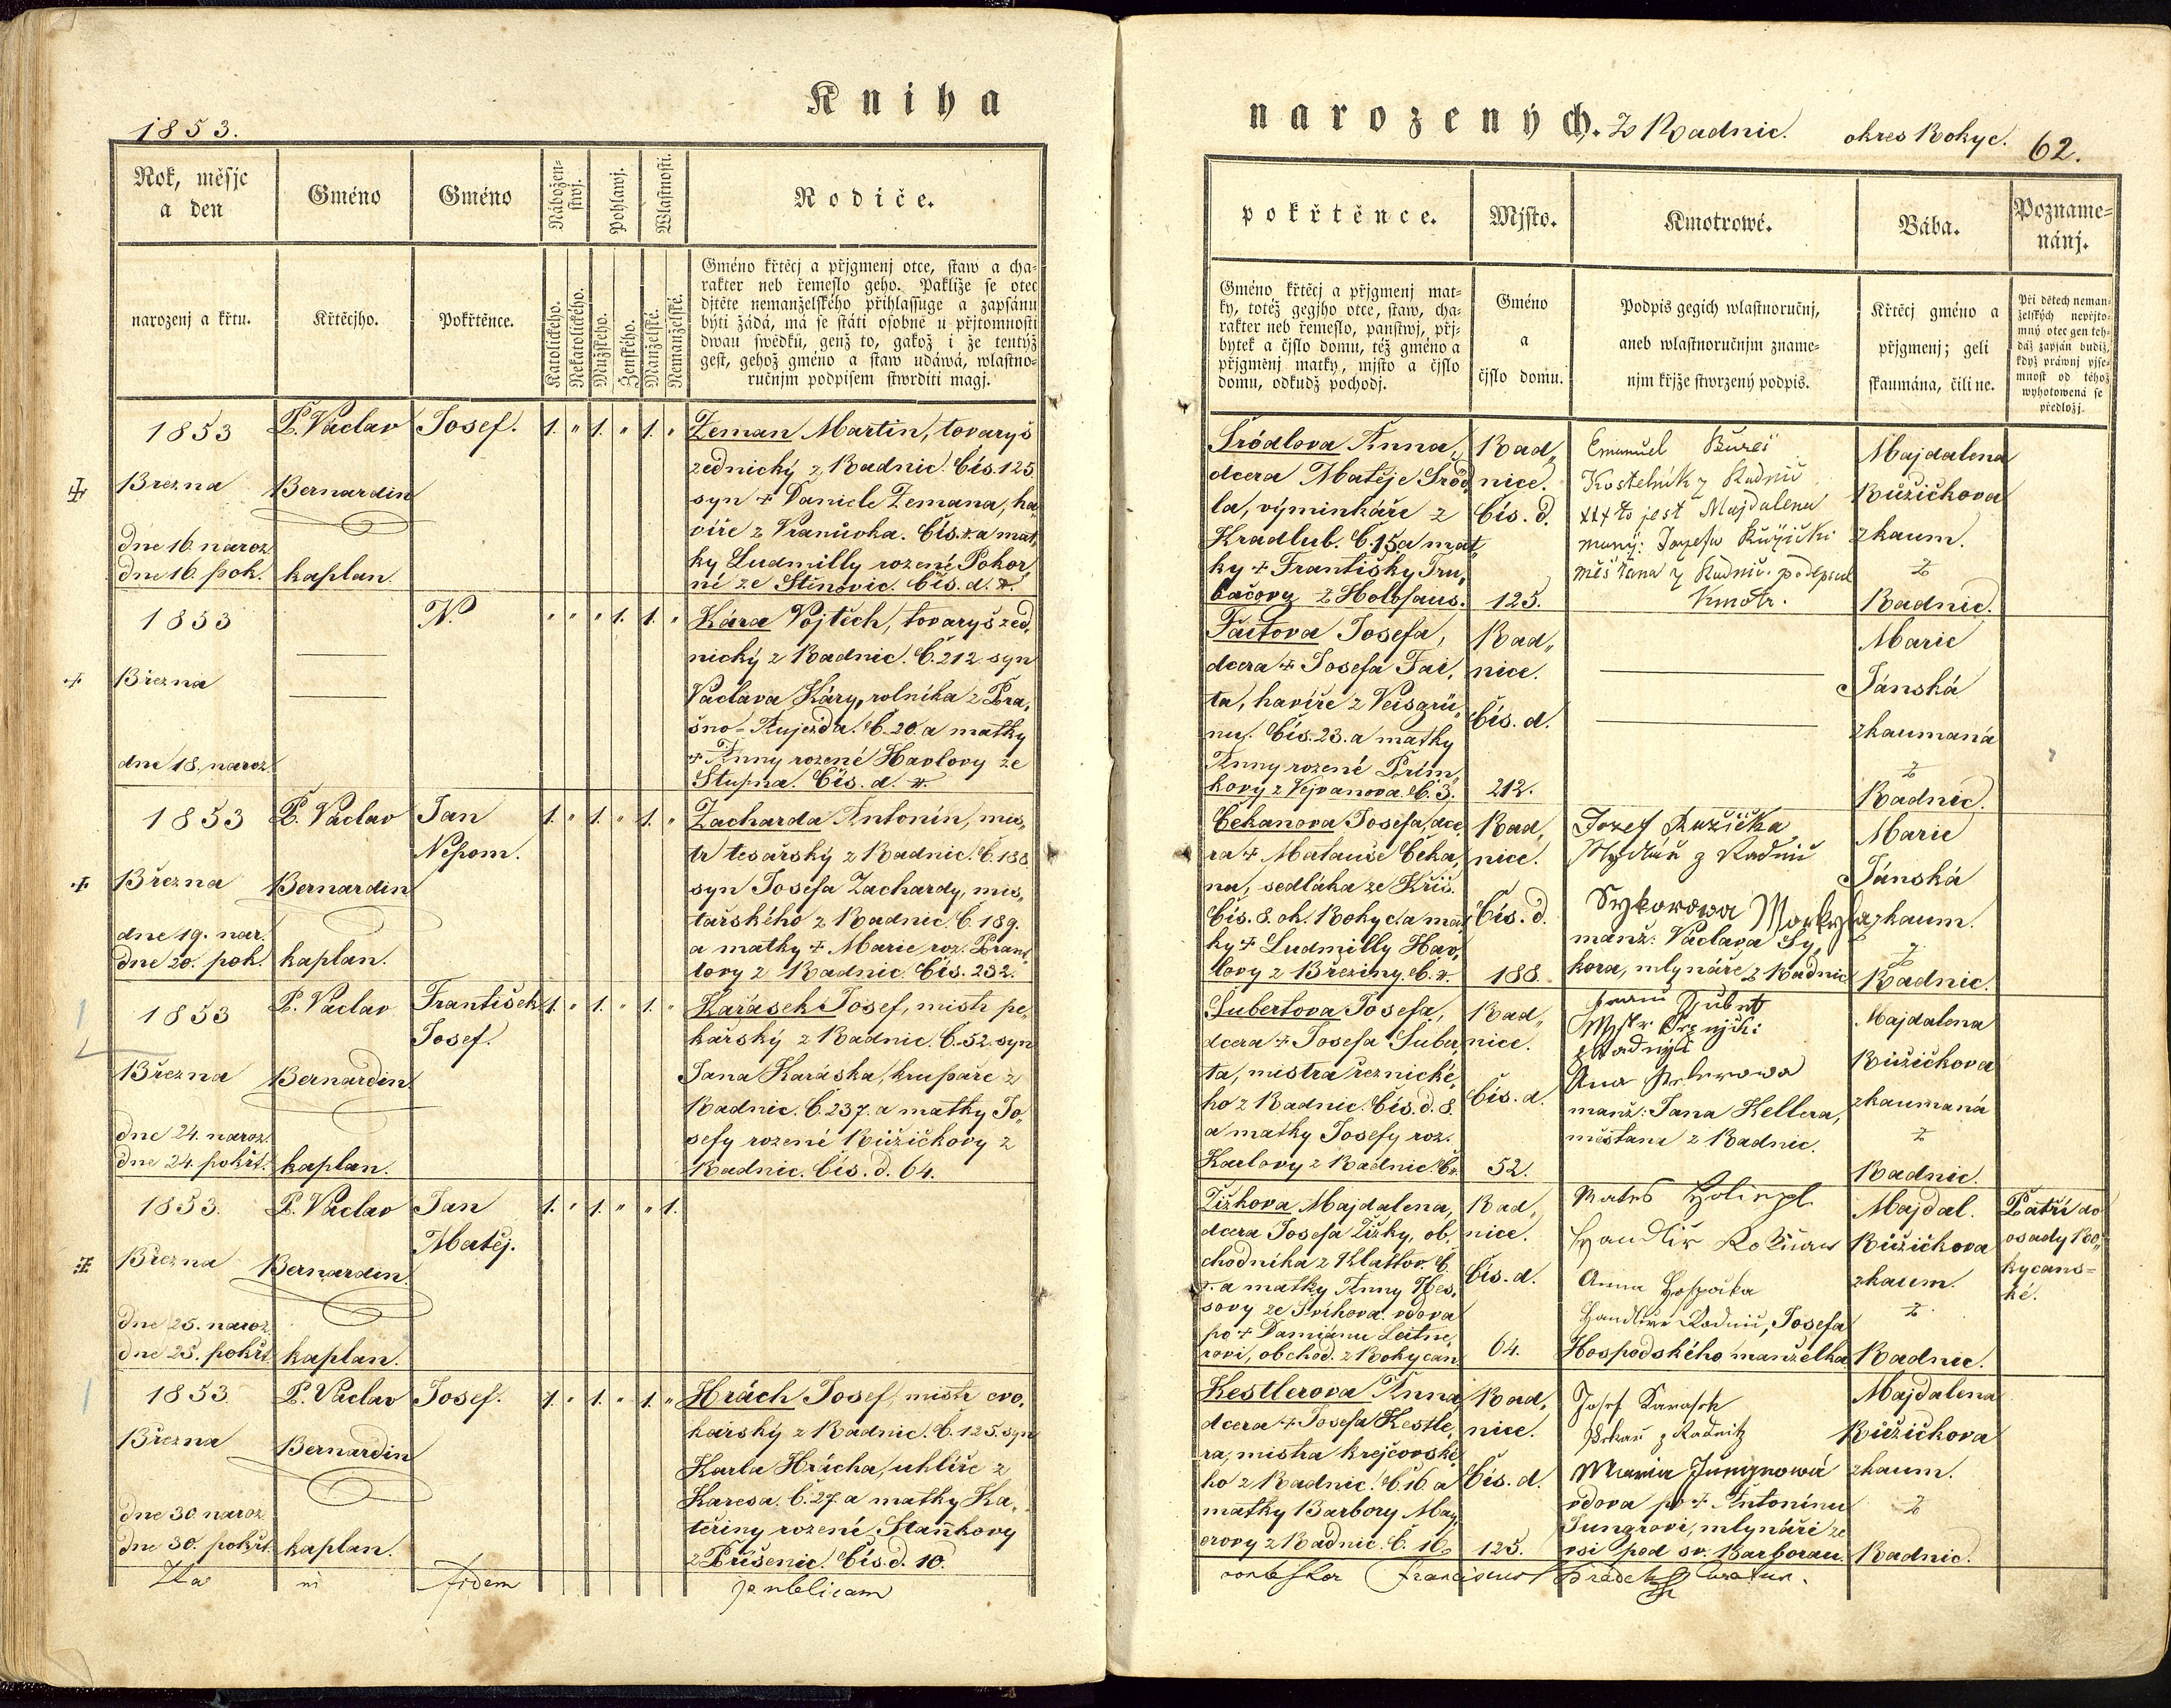 Kniha
narozených. Z Radnic. okres Rokyc. 62.
1853.
Rok, měsjc
a den
Gméno
Gméno
Nábožen-
stwj.
Pohlawj.
Wlastnosti.
Rodiče.
narozenj a křtu.
Křtěcjho.
Pokřtěnce.
Katolického.
Nekatolického.
Mužského.
Ženského.
Manželské.
Nemanželské.
Gméno křtěcj a přjgmenj otce, staw a cha-
rakter neb řemeslo geho. Pakliže se otec
djtěte nemanželského přihlassuge a zapsánu
býti žádá, má se státi osobně u přjtomnosti
dwau swědků, genž to, gakož i že tentýž
gest, gehož gméno a staw udáwá, wlastno-
ručnjm podpisem stwrditi magj.
1853
Března
dne 16. naroz.
dne 16. pok.
P. Václav
Bernardin
kaplan.
Josef.
1. " 1. " 1. "
Zeman Martin, tovaryš
zednický z Radnic. Čís. 125
syn + Daniele Zemana, ha-
víře z Vranůvka. Čís. a mat,
ky Ludmilly rozené Pokor
né ze Stěnovic. Čís. d.
1853
Března
dne 18. naroz.
N.
" " " 1. 1. "
Kára Vojtěch, tovaryš zed,
nický z Radnic. Č. 212. syn
Václava Káry, rolníka z Pra,
šno-Aujezda. Č. 20. a matky
+ Anny rozené Havlovy ze
Stupna. Čís. d.
1853
Března
dne 19. nar.
dne 20. pok.
P. Václav
Bernardin
kaplan.
Jan
Nepom.
1. " 1. " 1. "
Zacharda Antonín, mis,
tr tesařský z Radnic. Č. 188
syn Josefa Zachardy, mis,
tařského z Radnic. Č. 189.
a matky + Marie roz. Brant
lovy z Radnic. Čís. 232.
1853
Března
dne 24. naroz.
dne 24. pokřt.
P. Václav
Bernardin
kaplan.
František
Josef.
1. " 1. " 1. "
Karásek Josef, mistr pe,
kařský z Radnic. Č. 52. syn
Jana Karáska, krupaře z
Radnic. Č. 237. a matky Jo,
sefy rozené Růžičkovy z
Radnic. Čís. d. 64.
1853.
Března
dne 25. naroz.
dne 25. pokřt.
P. Václav
Bernardin
kaplan.
Jan
Matěj.
1. " 1. " " 1.
1853
Března
dne 30. naroz.
dne 30. pokřt.
P. Václav
Bernardin
kaplan.
Josef.
1. " 1. " 1. "
Hrách Josef, mistr cvo,
kařský z Radnic. Č. 125. syn
Karla Hrácha, uhlíře z
Kareza. Č. 27. a matky Ka,
teřiny rozené Staňkovy
z Příšenic. Čís. d. 10.
Ita ni fidem publicam
pokřtěnce.
Mjsto.
Kmotrowé.
Bába.
Pozname-
nánj.
Gméno křtěcj a přjgmenj mat-
ky, totéž gegjho otce, staw, cha-
rakter neb řemeslo, panstwj, přj-
bytek a čjslo domu, též gméno a
přjgmenj matky, mjsto a čjslo
domu, odkudž pochodj.
Gméno
a
čjslo domu.
Podpis gegich wlastnoručnj,
aneb wlastnoručnjm zname-
njm křjže stwrzený podpis.
Křtěcj gméno a
přjgmenj; geli
skaumána, čili ne.
Při dětech neman-
želských nepřjto-
mný otec gen teh-
dáž zapsán budiž,
když práwnj pjse-
mnost od téhož
wyhotowená se
předložj.
Šrödlova Anna,
dcera Matěje Šröd,
la, výminkáře z
Kradlub. Č. 15 a mat
ky + Františky Tru,
bačovy z Holofaus.
Rad,
nice.
Čís. d.
125.
Emanuel Bureš
Kostelník z Radnic
xxx to jest Majdalena
manž: Jozefa Růžički
měštana z Radnic. podepsal
Kmotr.
Majdalena
Růžičkova
zkaum.
z
Radnic.
Faitova Josefa,
dcera + Josefa Fai,
ta, havíře z Veisgrü,
nu. Čís. 23. a matky
Anny rozené Prům,
kovy z Vejvanova. Č. 3.
Rad,,
nice.
Čís. d.
212.
Marie
Jánská
zkaumaná
z
Radnic.
Čekanova Josefa, dce,
ra + Matauše Čeka,
na, sedláka ze Kříš.
Čís. 8. ok. Rokyc. a mat
ky + Ludmilly Hav,
lovy z Březiny. Č.
Rad,
nice.
Čís. d.
188.
Jozef Růžička
Mydlář z Radnic
Sykorowa
manž. Václava Sy,
kora, mlynáře z Radnic
Marie
Jánská
zkaum.
z
Radnic.
Šubertova Josefa,
dcera + Josefa Šuber,
ta, mistra řeznické,
ho z Radnic. Čís. d. 8.
a matky Josefy roz.
Karlovy z Radnic. Č.
Rad,,
nice.
Čís. d.
52.
Šubrt
z Radnyc
Ana Kelerowa
manž: Jana Kellera,
měštana z Radnic.
Majdalena
Růžičkova
zkaumaná
z
Radnic.
Žižkova Majdalena,
dcera Josefa Žižky, ob,
chodníka z Klattov. Č.
a matky Anny Hes,
sovy ze Švihova. vdova
po + Damiánu Leitne,
rovi, obchod. z Rokycan.
Rad,
nice.
Čís. d.
64.
Anna Hospotka
Josefa
Hospodského manželka.
Majdal.
Růžičkova
zkaum.
z
Radnic.
Patří do
osady Ro,
kycans-
ké.
Kestlerova Anna,
dcera + Josefa Kestle,
ra, mistra krejčovské,
ho z Radnic. Č. 16. a
matky Barbory May,
erovy z Radnic. Č. 16.
Rad,
nice.
Čís. d.
125.
Josef Karasek
Pekař z Radnitz
Maria Jungrowá
vdova po + Antonínu
Jungrovi, mlynáři ze
vsi pod sv. Barborau.
Majdalena
Růžičkova
zkaum.
z
Radnic.
Franciscus